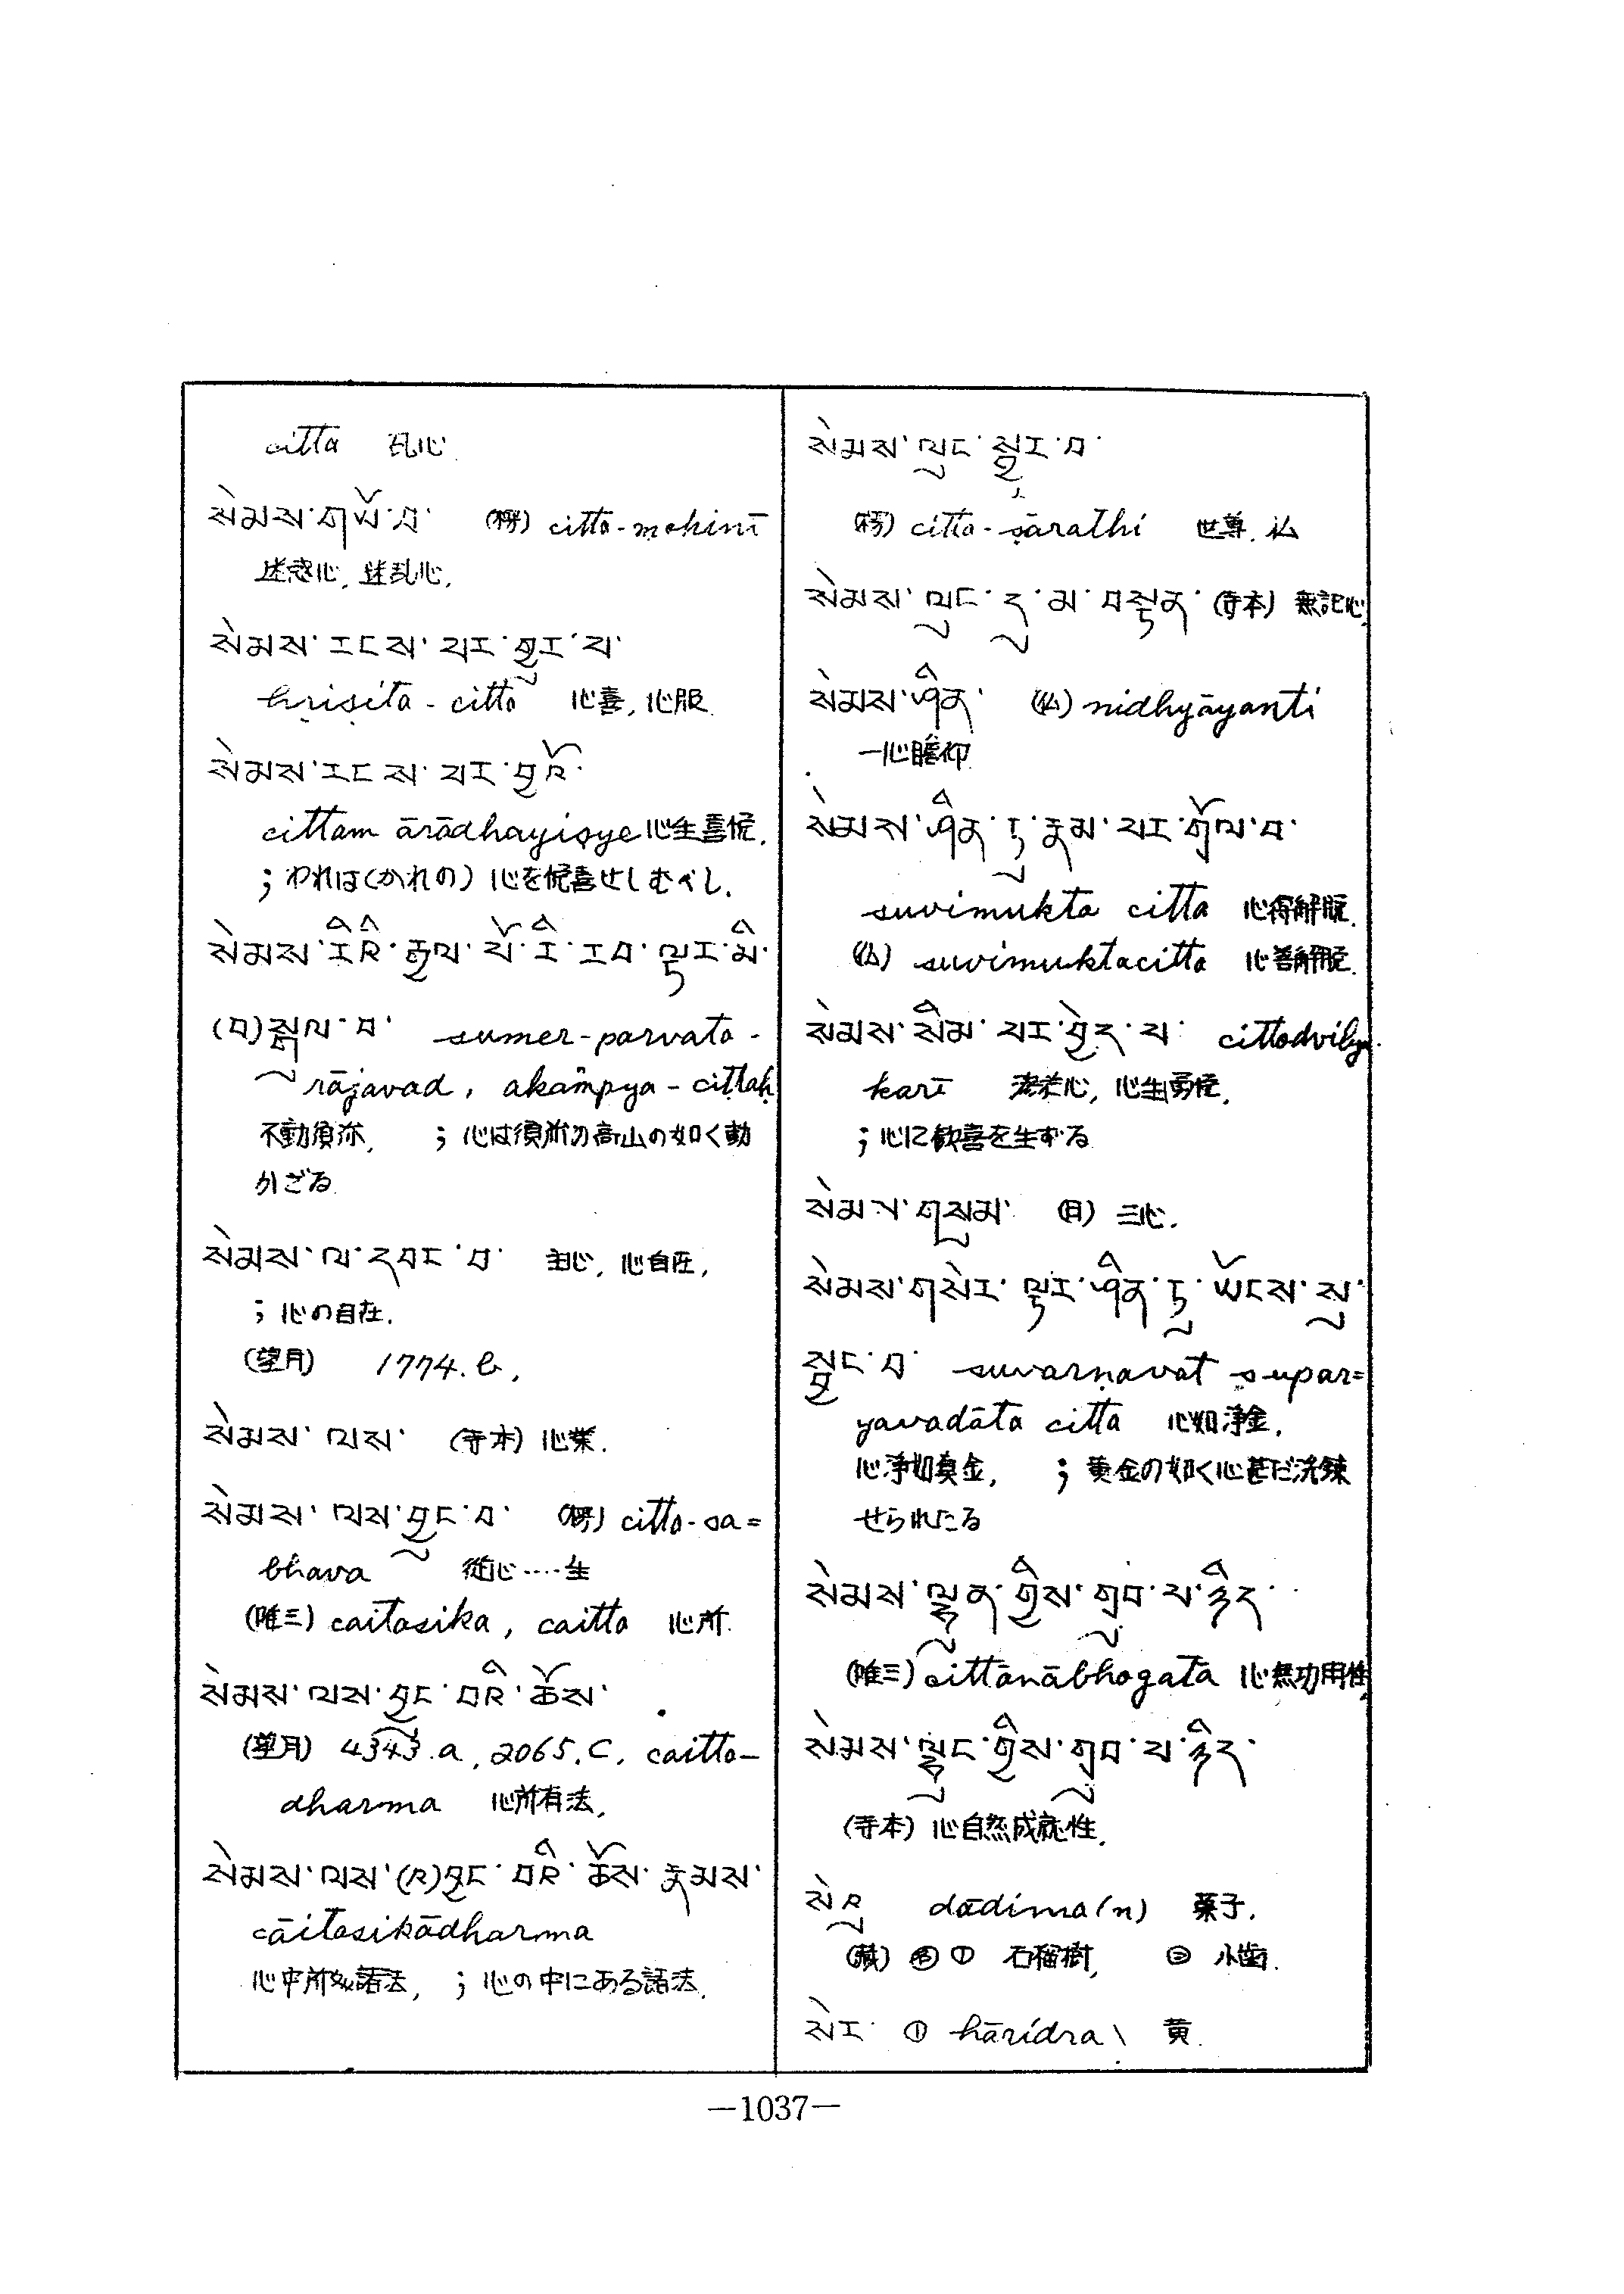 citta 乱心
སེམས་གཡོ་བ་ (楞) citta-mohinī
迷惑心, 迷乱心,
སེམས་རངས་པར་གྱུར་པ་
hriṣita-citta 心喜, 心服
སེམས་རངས་པར་བྱའོ་
cittam ārādhayiṣye 心生喜悦,
; われは(かれの) 心を悦喜せしむべし.
སེམས་རིའི་རྒྱལ་པོ་རི་རབ་ལྟར་མི་
(བ)སྒུལ་བ་ sumer-parvata-
rājavad, akampya-cittaḥ
不動須弥, ; 心は須弥の高山の如く動
かざる
སེམས་ལ་དབང་བ་ 主心, 心自在,
; 心の自在.
(望月) 1774.b,
སེམས་ལས་ (寺本) 心業.
སེམས་ལས་བྱུང་བ་ (楞) citta-sa=
bhava 從心‥‥生
(唯三) caitasika, caitta 心所
སེམས་ལས་བྱུང་བའི་ཆོས་
(望月) 4343.a, 2065.C, caitta-
dharma 心所有法,
སེམས་ལས་(འ)བྱུང་བའི་ཆོས་རྣམས་
cāitasikādharma
心中所 諸法, ; 心の中にある諸法,
སེམས་ལུང་སྦྱར་བ་
(楞) citta-sārathi 世尊, 仏
སེམས་ལུང་དུ་མ་བསྟན་ (寺本) 無記心,
སེམས་ཤིན་ (仏) nidhyāyanti
一心瞻仰
སེམས་ཤིན་ཏུ་རྣམ་པར་གྲོལ་བ་
suvimukta citta 心得解脱,
(仏) suvimuktacitta 心善解脱,
སེམས་སིམ་པར་བྱེད་པ་ cittodvilya-
karī 心, 心生勇悦,
; 心に歓喜を生ずる
སེམས་གསུམ་ (目) 三心.
སེམས་གསེར་ལྟར་ཤིན་ཏུ་ཡོངས་སུ་
སྦྱང་བ་ suvarṇavat supar=
yavadāta citta 心如淨金,
心淨如真金, ; 黄金の如く心甚だ洗錬
せられたる
སེམས་ལྷུན་གྱིས་གྲུབ་པ་ཉིད་
(唯三) cittānābhogatā 心無功用性
སེམས་ལྷུང་གྱིས་གྲུབ་པ་ཉིད་
(寺本) 心自然成就性,
སེའུ dādima(n) 菓子.
(蔵) ① 石榴樹, ② 小歯.
སེར་ ① hāridra\ 黄.
—1037—